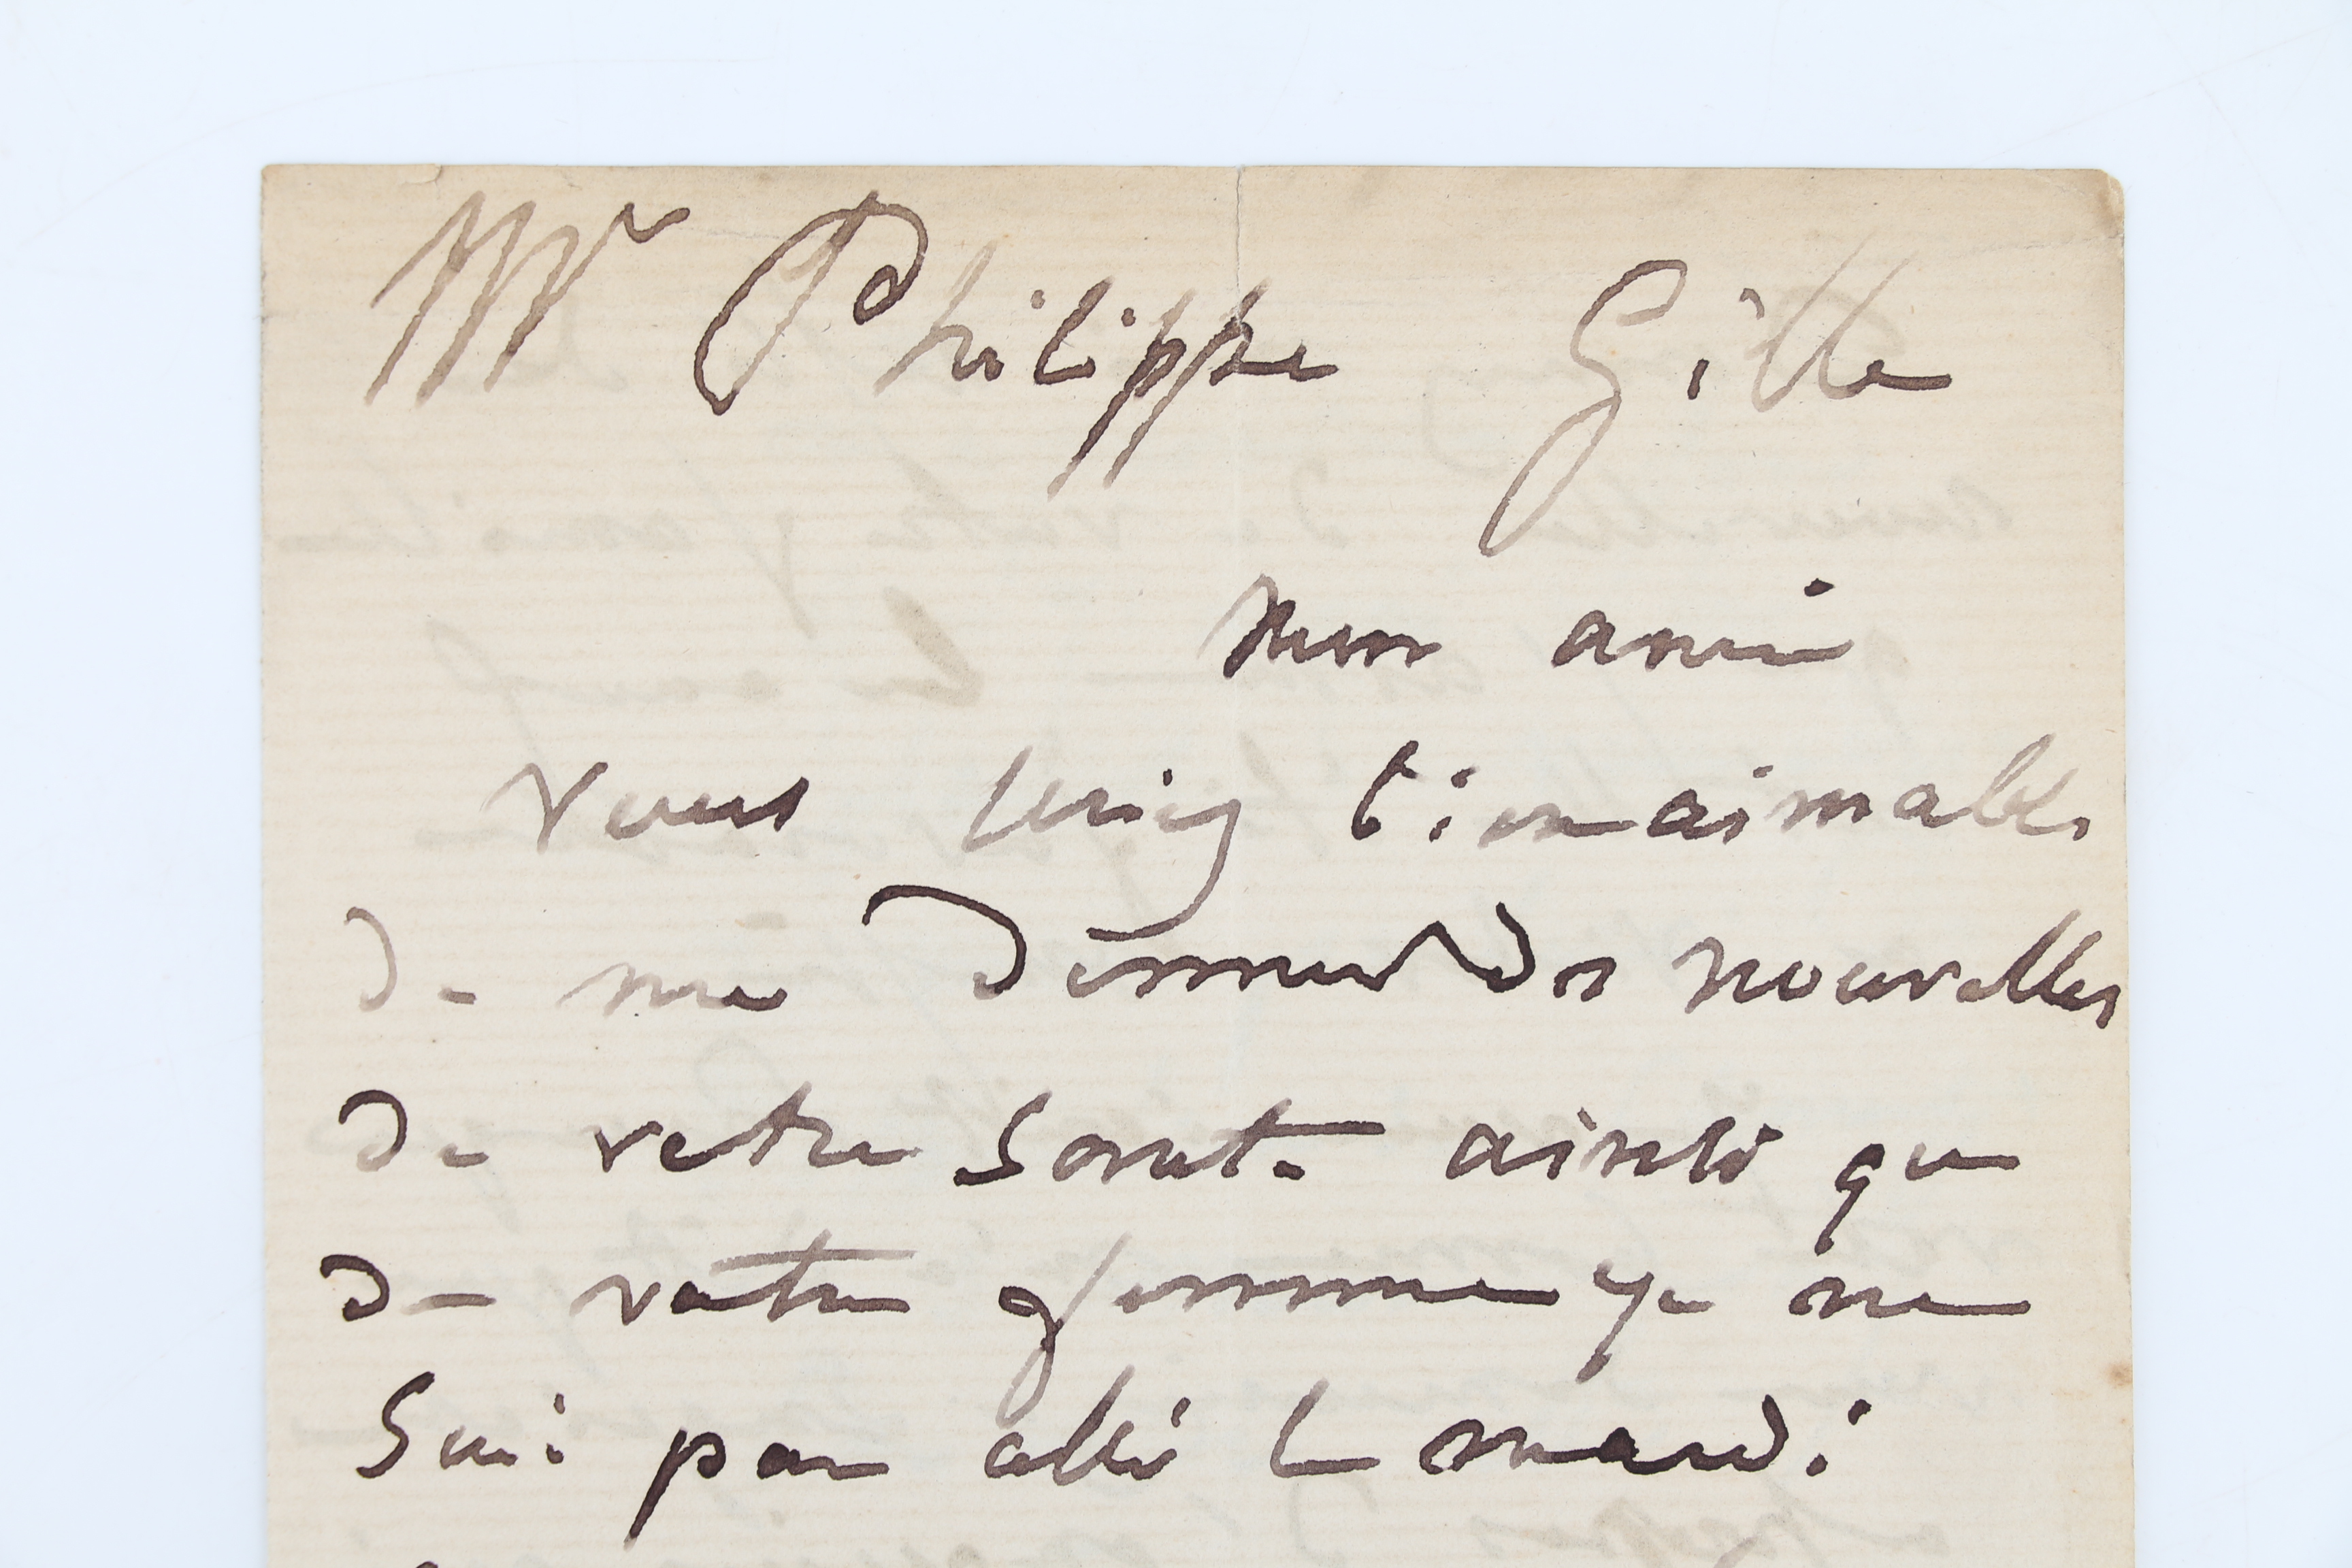 Mr Philippe Gille
mon ami
vous seriez bien aimables
de me donner des nouvelles
de votre santé ainsi que
de votre femme je ne
suis pas allé le mardi